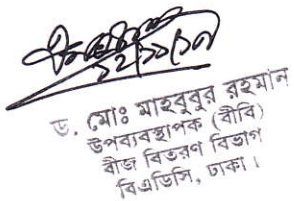 ১২/১০/১৭
ড. মোঃ মাহবুবুর রহমান
উপব্যবস্থাপক (বীবি)
বীজ বিতরণ বিভাগ
বিএডিসি, ঢাকা।